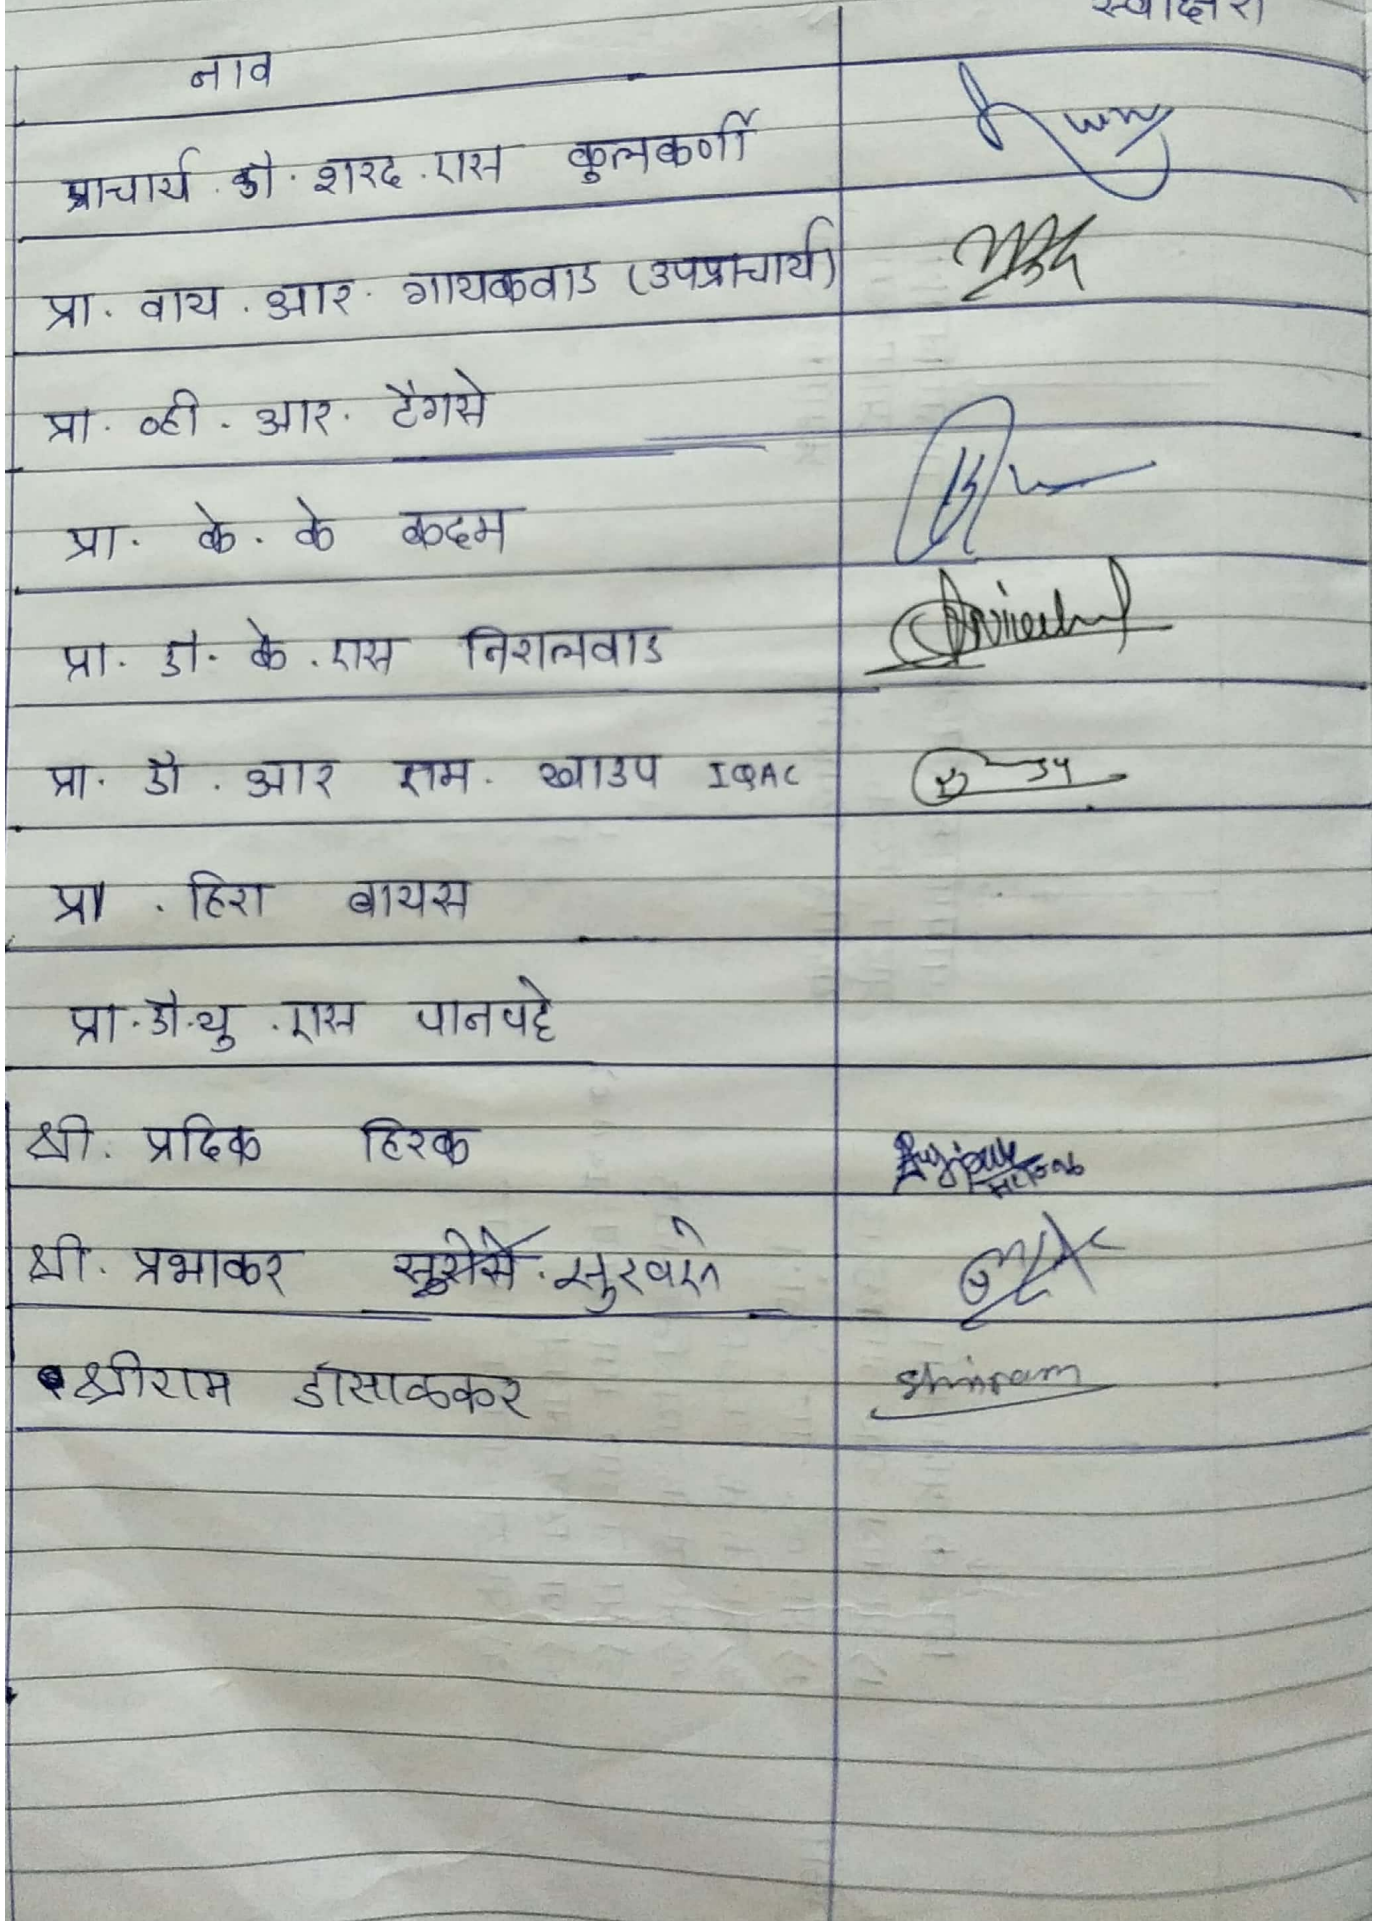 नाव स्वाक्षरी
प्राचार्य . डॉ . शरद . एस कुलकर्णी
प्रा . वाय . आर . गायकवाड (उपप्राचार्य)
प्रा . व्ही . आर . टेंगसे
प्रा . के . के कदम
प्रा . डॉ . के . एस निरालवाड
प्रा . डॉ . आर एम . खाडप IQAC
प्रा . हिरा बायस
प्रा . डॉ . यु . एस पानपट्टे
श्री . प्रदिक हिरक
श्री . प्रभाकर सुरवसे
श्रीराम डासाळकर Shriram